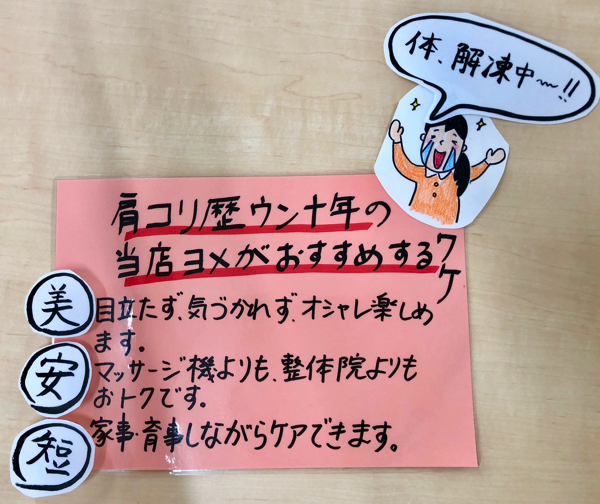 体、解凍中〜!!
肩コリ歴ウン十年の
当店ヨメがおすすめするワケ
美
目立たず、気づかれず、オシャレ楽しめ
ます。
安
マッサージ機よりも、整体院よりも
おトクです。
短
家事・育事しながらケアできます。